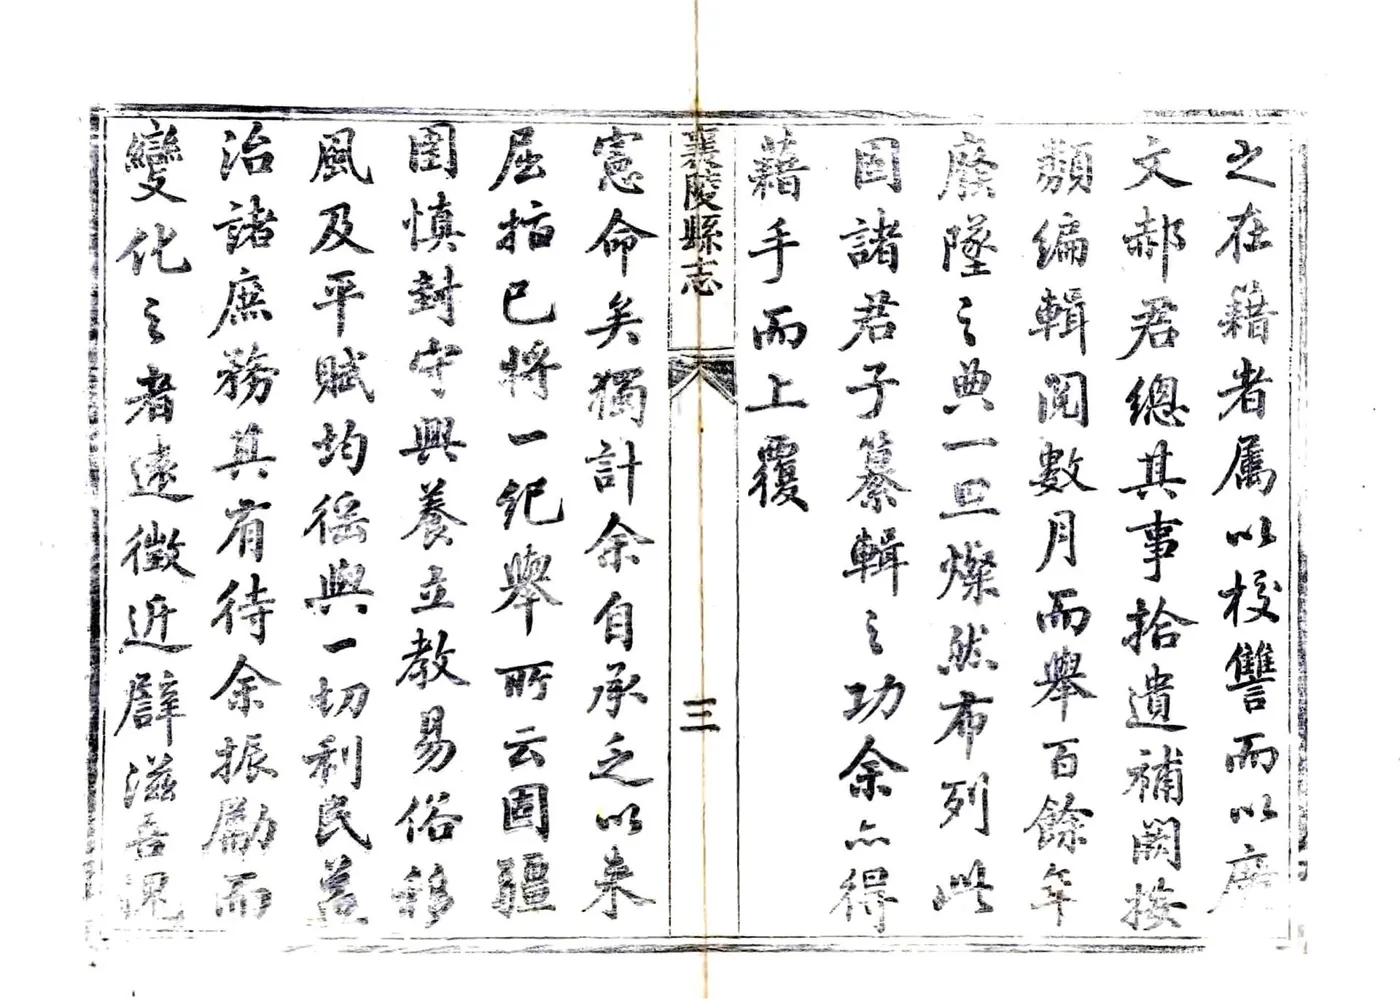 之在籍者属以校讐而以廣
文郝君總其事拾遺補闕按
類編輯閲數月而舉百餘年
廢墜之典一旦燦然布列此
固諸君子纂輯之功余亦得
藉手而上覆
襄陵縣志
三
憲命矣獨計余自承乏以来
屈指已將一紀舉所云固疆
圉慎封守興養立教易俗移
風及平賦均徭與一切利民
治諸庶務其有待余振勵而
變化之者遠徵近譬滋吾